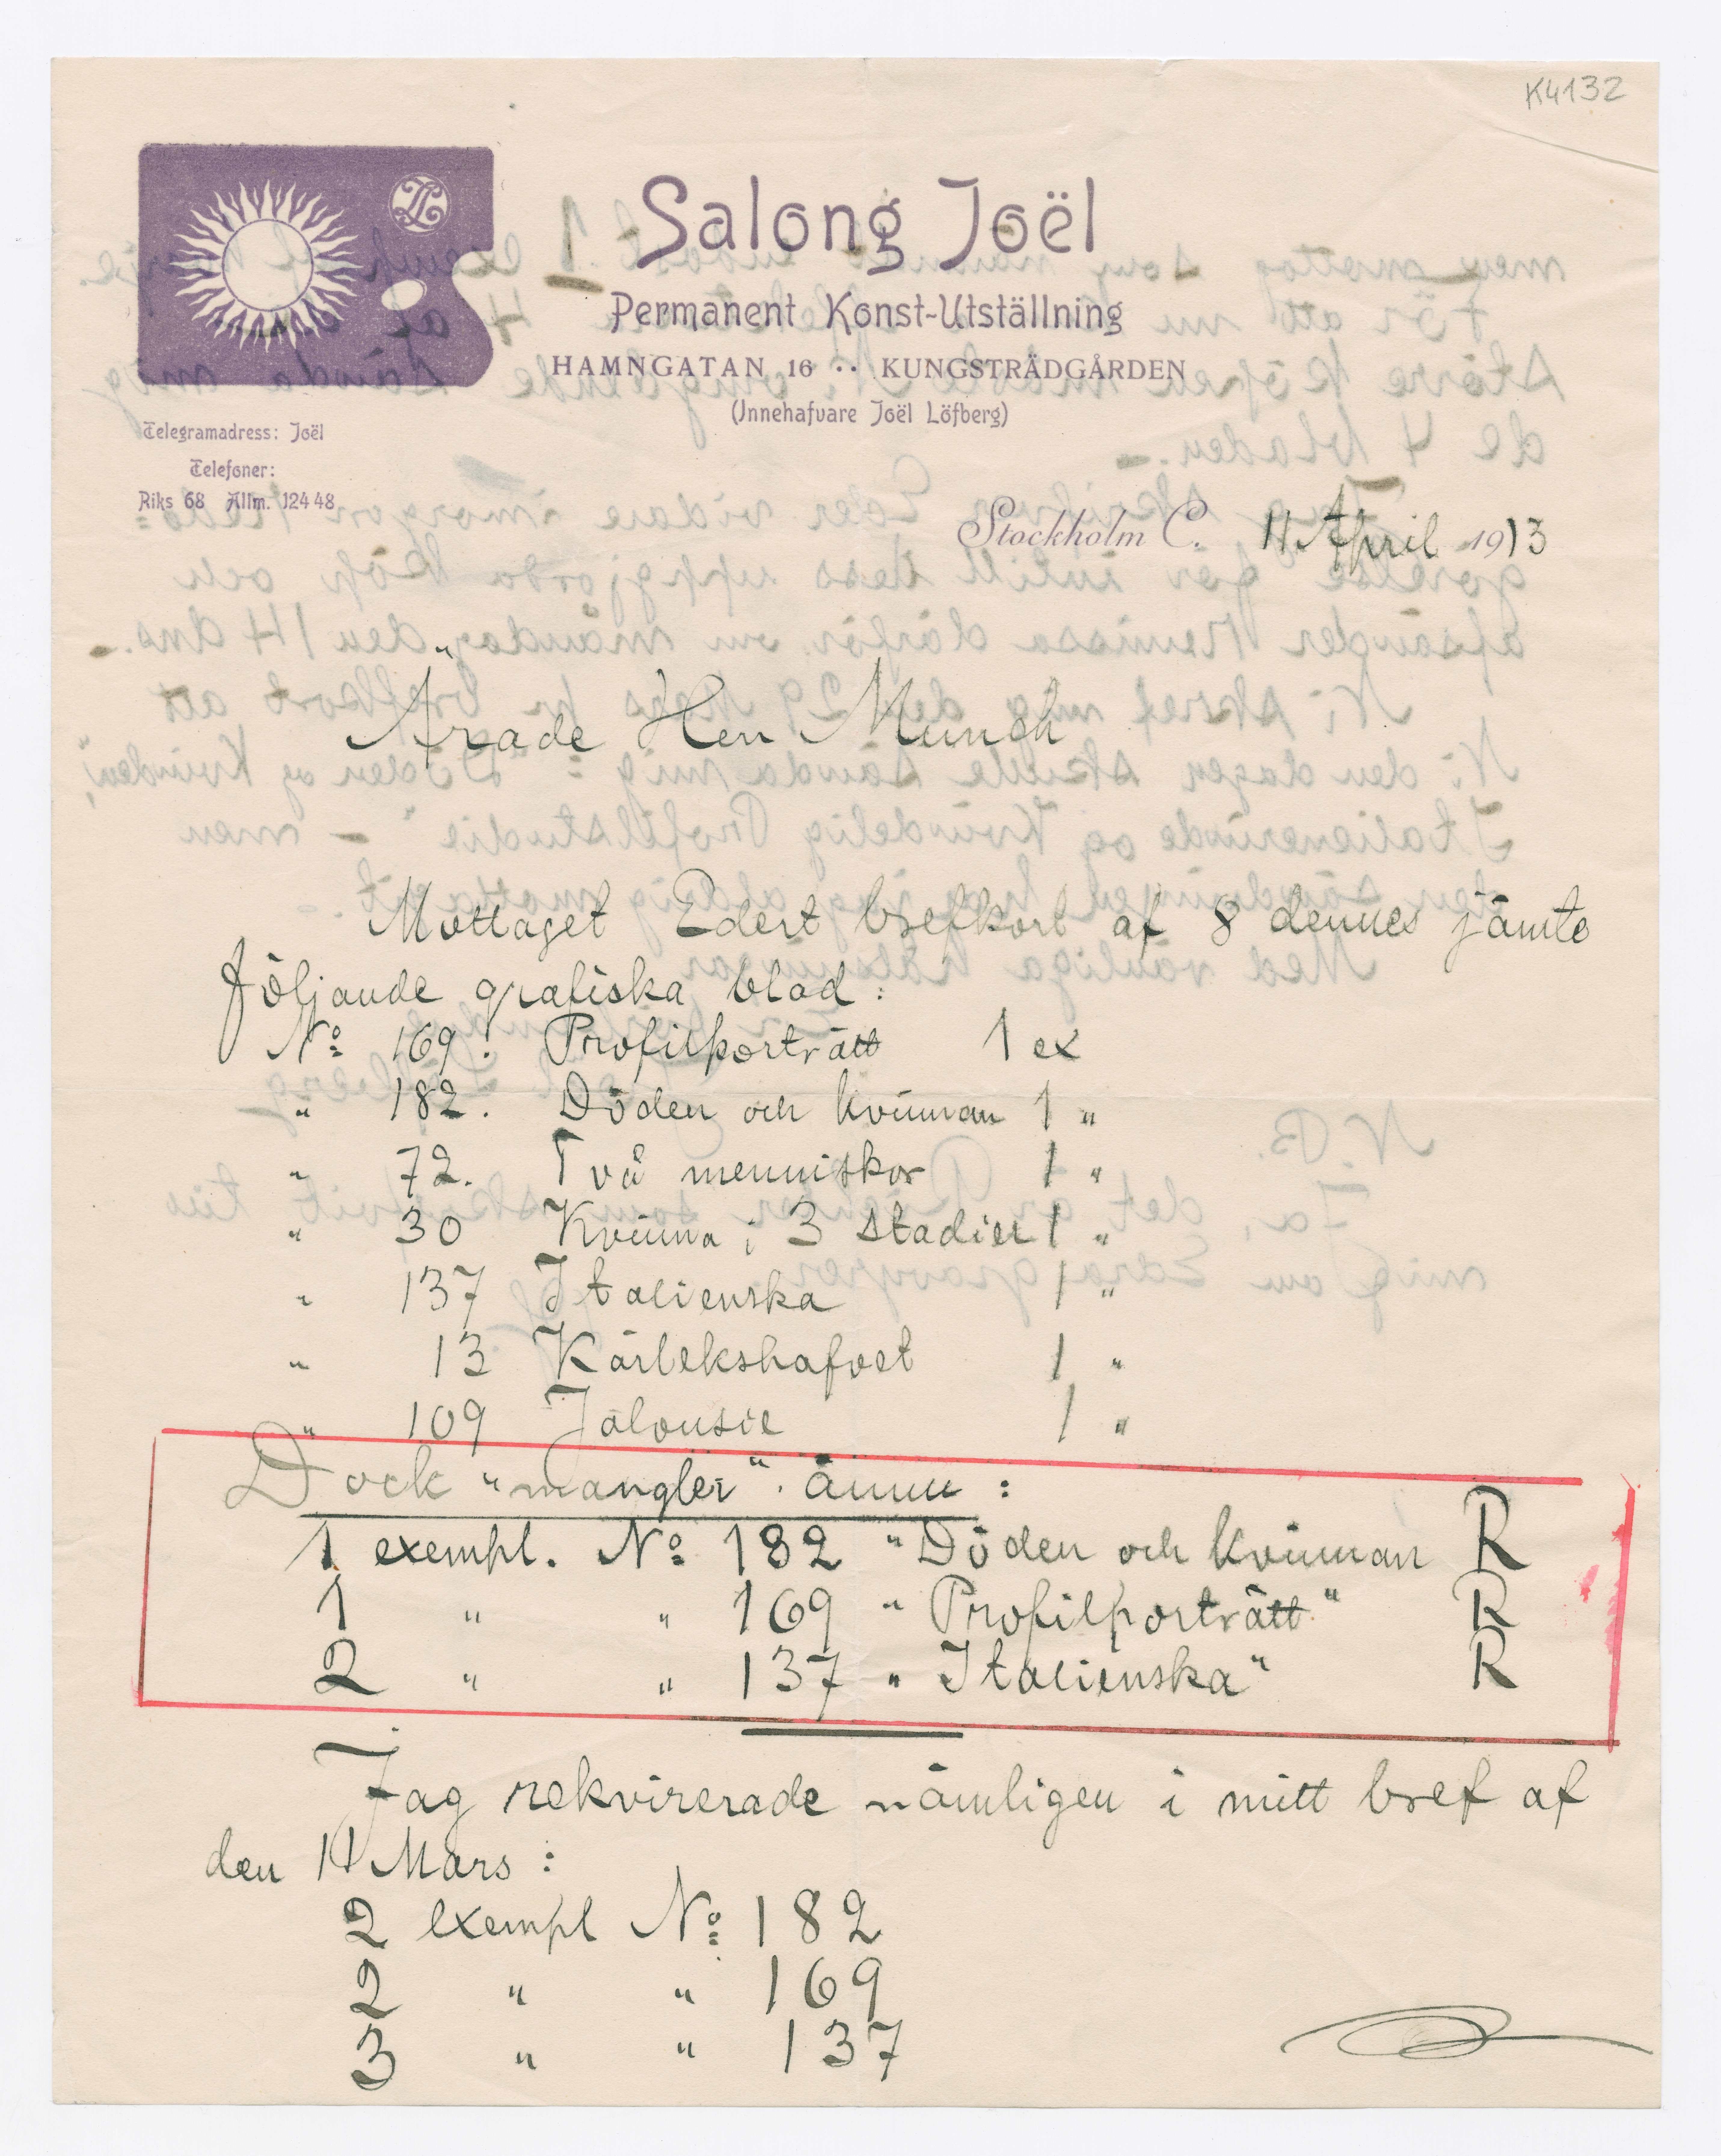 K4132
Salong Joël
Permanent Konst-Utställning
HAMNGATAN 16 ·· KUNGSTRÄDGÅRDEN
(Innehafvare Joël Löfberg)
Telegramadress: Joël
Telefoner:
Riks 68 Allm. 124 48
Stockholm C. 11 April 1913
Ärade Herr Munch
Mottaget Edert brefkort af 8 dennes jämte
följande grafiska blad:
No 169. Profilporträtt 1 ex
" 182. Döden och kvinnan 1 "
" 72. Två menniskor 1 "
" 30 Kvinna i 3 stadier 1 "
" 137 Italienska 1 "
" 13 Kärlekshafvet 1 "
" 109 Jalousie 1 "
Dock "mangler" ännu:
1 exempl. No 182 "Döden och kvinnan R
1 " " 169 " Profilporträtt" R
2 " " 137 " Italienska" R
Jag rekvirerade nämligen i mitt bref af
den 11 Mars:
2 exempl No 182
2 " " 169
3 " " 137